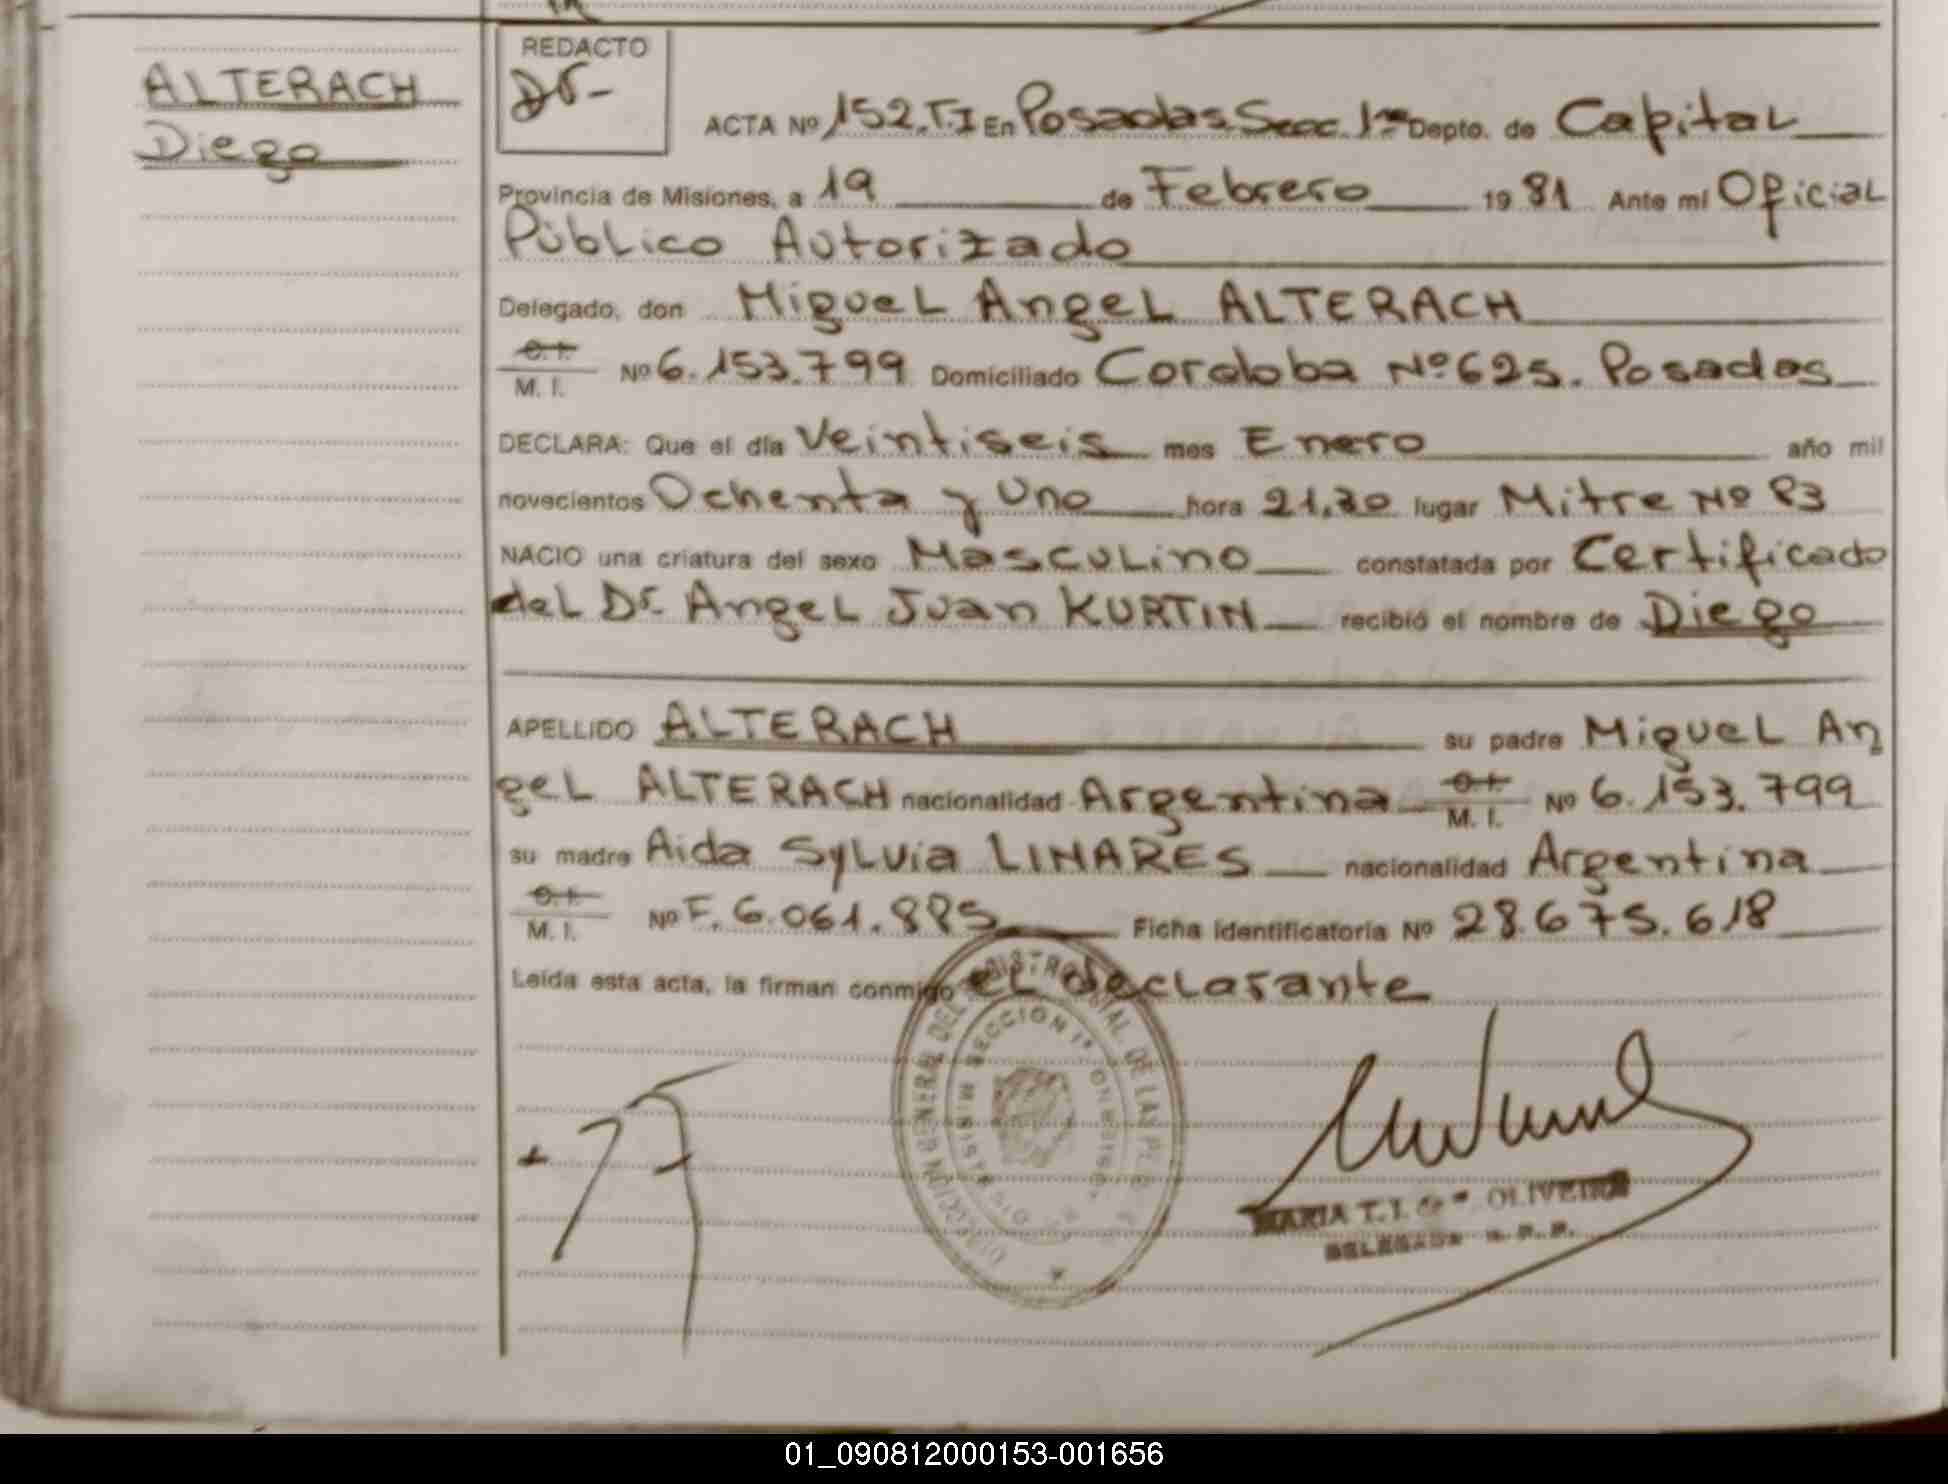 ALTERACH
Diego
REDACTO
ACTA Nº 152.T.I En Posadas Secc. 1ra Depto. de Capital
Provincia de Misiones, a 19 de Febrero 1981 Ante mí Oficial
Público Autorizado
Delegado, don Miguel Angel ALTERACH
C. I.
M. I. Nº 6.153.799 Domiciliado Cordoba Nº 625. Posadas
DECLARA: Que el día Veintiseis mes Enero año mil
novecientos Ochenta y Uno hora 21,30 lugar Mitre Nº 83
NACIO una criatura del sexo Masculino constatada por Certificado
del Dr. Angel Juan KURTIN recibió el nombre de Diego
APELLIDO ALTERACH su padre Miguel An
gel ALTERACH nacionalidad Argentina C. I. M. I. Nº 6.153.799
su madre Aida Sylvia LINARES nacionalidad Argentina
C. I.
M. I. Nº F. 6.061.885 Ficha identificatoria Nº 28.675.618
Leída esta acta, la firman conmigo el declarante
DIRECCION GENERAL DEL REGISTRO DE LAS
SECCION 1ª
MARIA T. I. de OLIVEIRA
DELEGADA R. P. P.
01_090812000153-001656